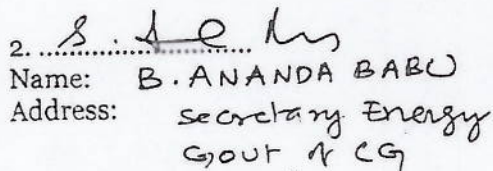 2. ....................
Name: B. ANANDA BABU
Address: Secretary Energy
Govt of CG